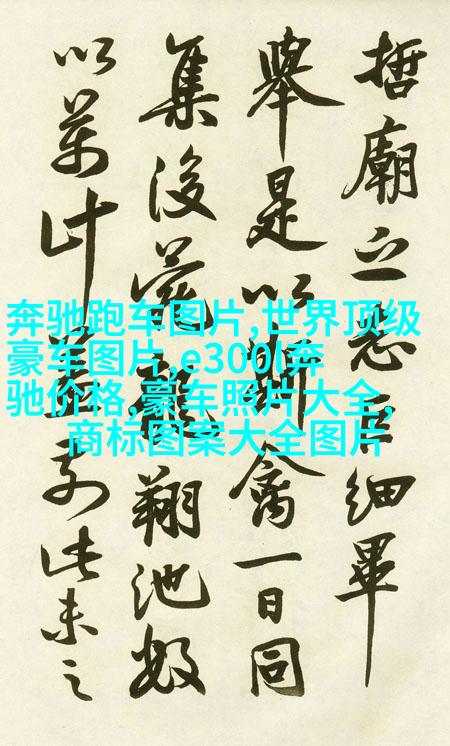 奔驰跑车图片,世界顶级
豪车图片,e300l奔
驰价格,豪车照片大全,
商标图案大全图片
哲廟之忌臣細畢
舉是以禽一日同
集後苑龍翔池
以萬計前此未之